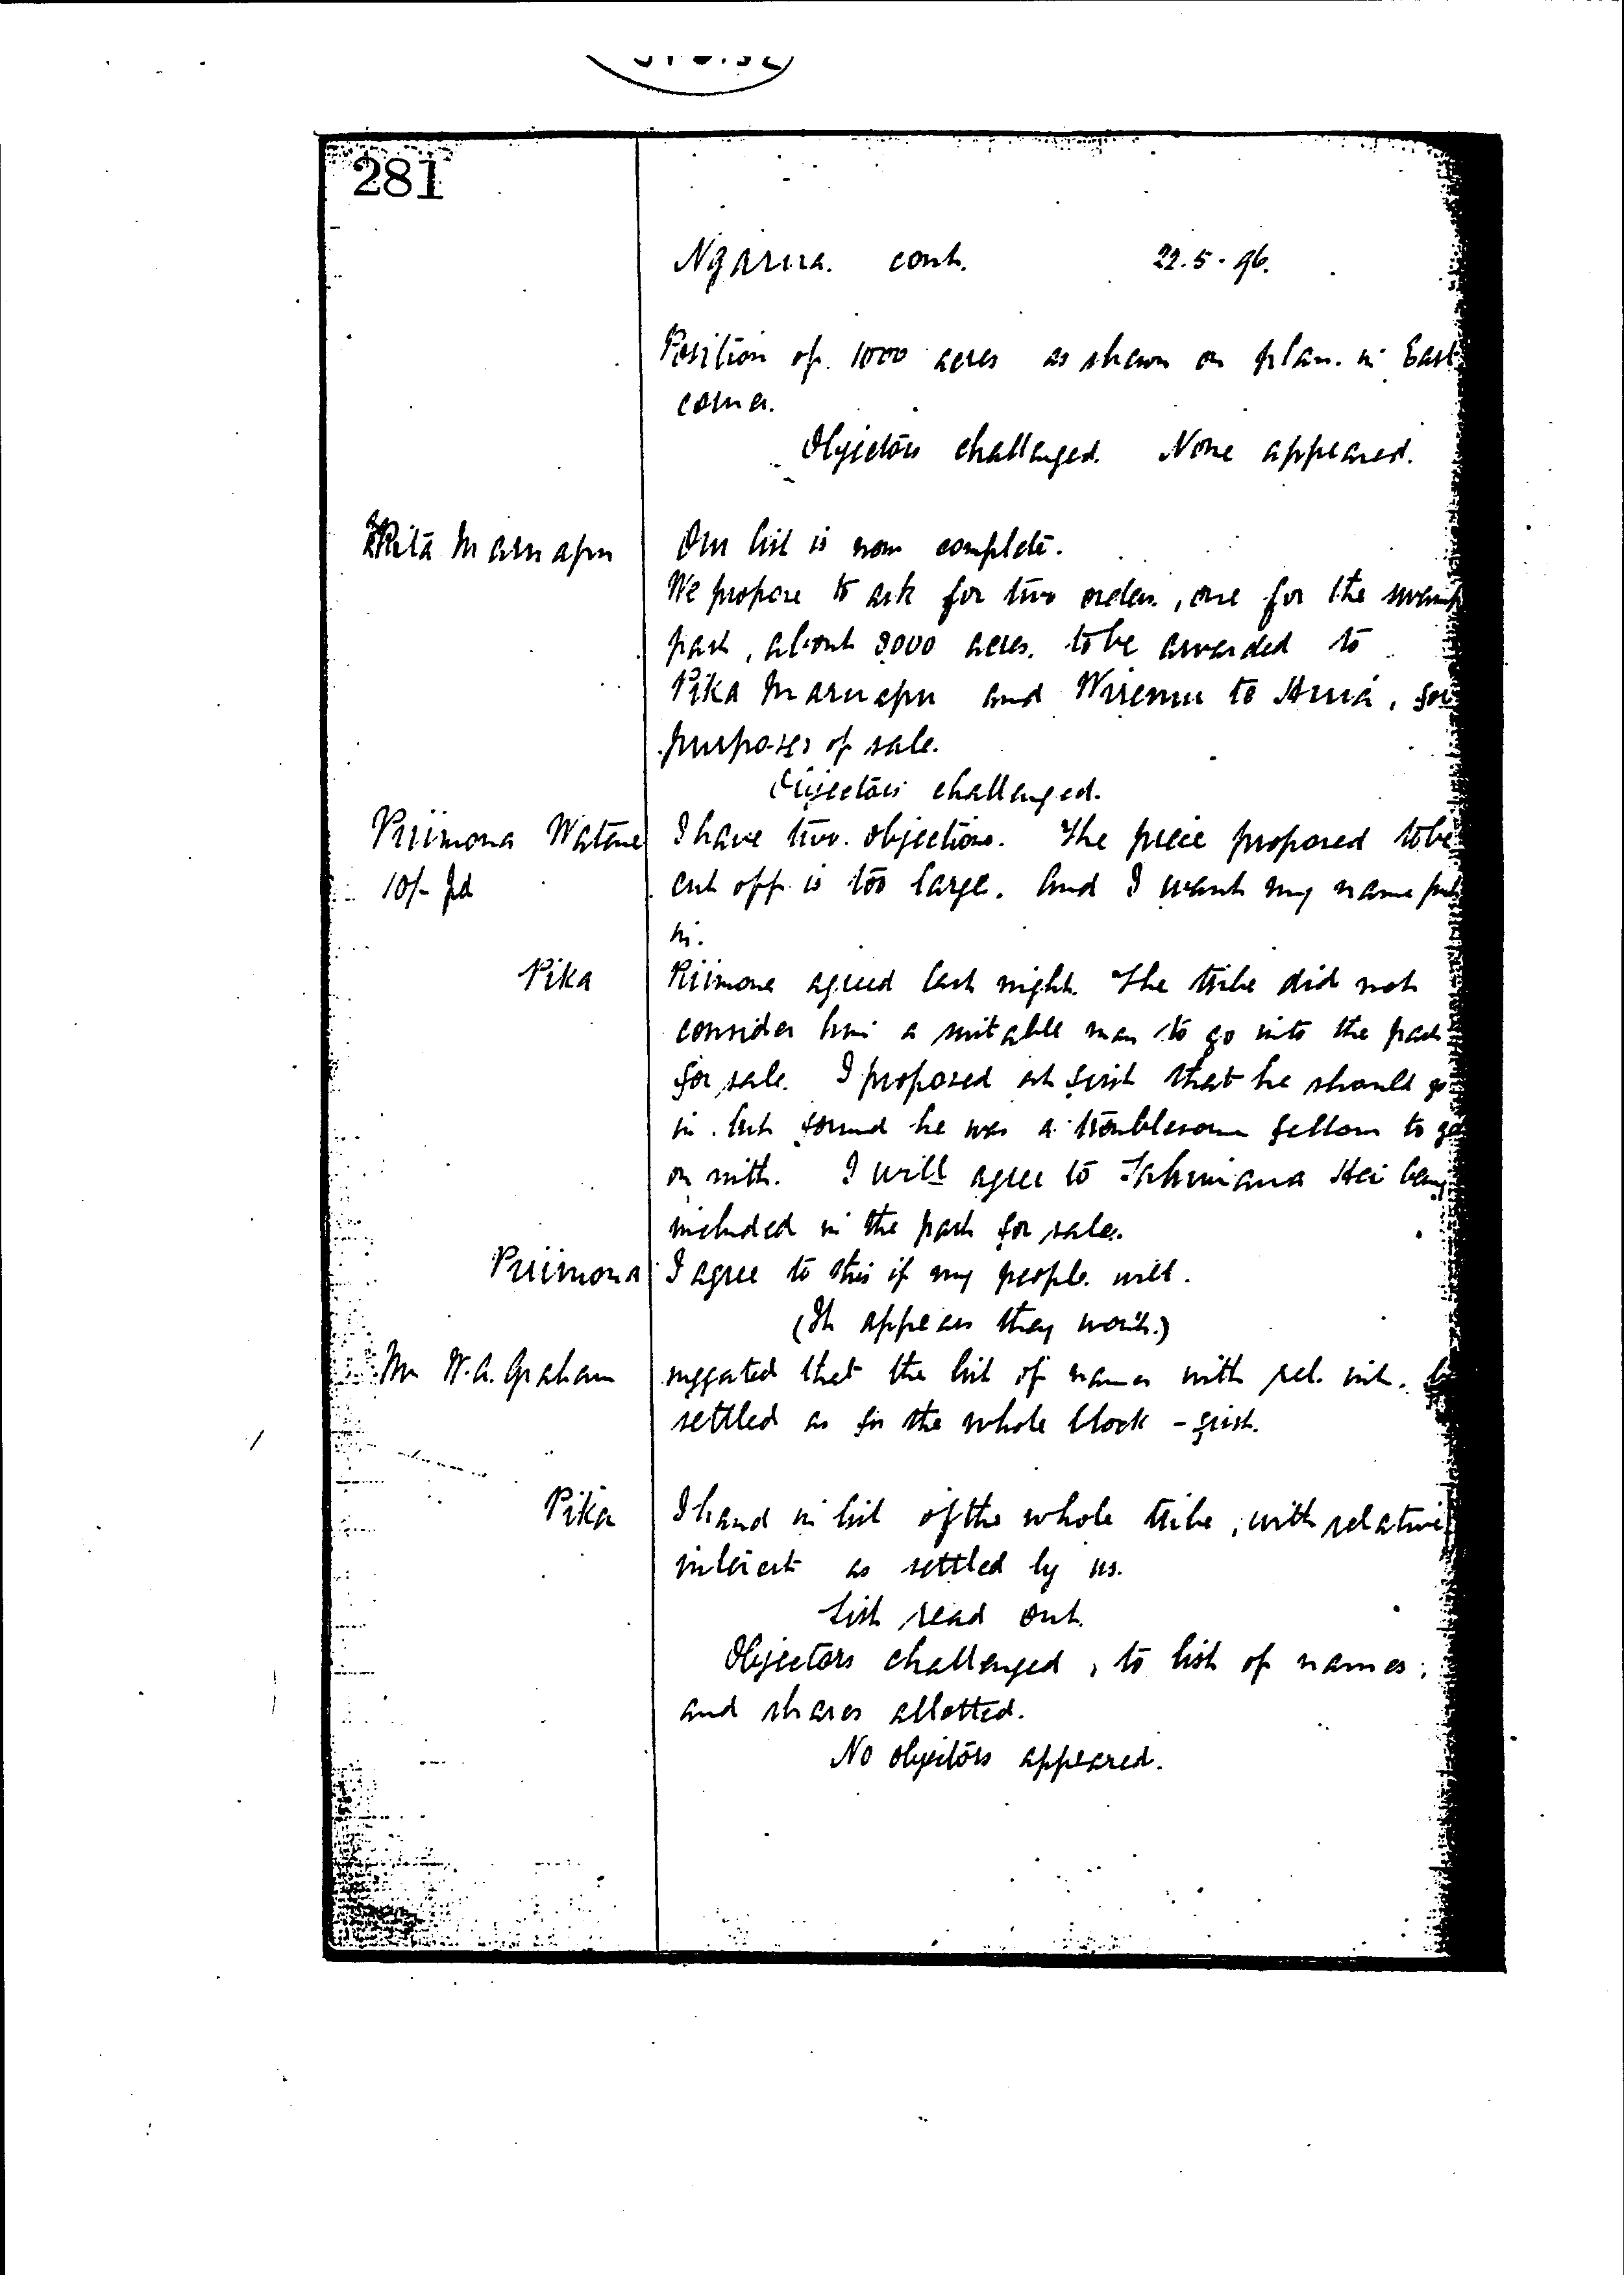 281
Ngarua. cont. 22.5.96.
Position of 1000 acres as shown on plan in East
corner.
Objectors challenged. None appeared.
Maruapu Our list is now complete.
We propose to ask for two orders, one for the swamp
part, about acres. to be awarded to
Pika Maruapu and Wiremu te, for
purposes of sale.
Objectors challenged.
Pirimona Watene I have two objections. The piece proposed to be
10/- pd cut off is too large. And I want my name put
in.
Pika Pirimona agreed last night. The tribe did not
consider him a suitable man to go into the part
for sale. I proposed at first that he should go
in but found he was a troublesome fellow to go
on with. I will agree to Hei being
included in the part for sale.
Pirimona I agree to this if my people will.
(It appears they won't.)
Mr W.A. Graham suggested that the list of names with rel. int. be
settled as for the whole block - first.
Pika I hand in list of the whole tribe, with relative
interest as settled by us.
List read out.
Objectors challenged, to list of names,
and shares allotted.
No objectors appeared.